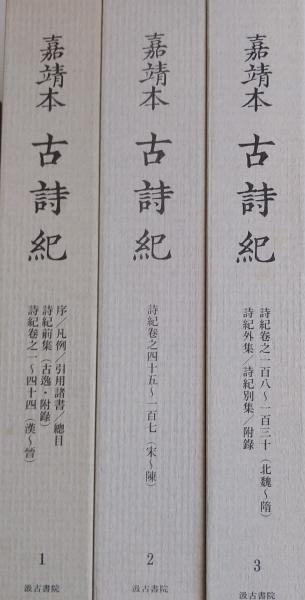 嘉靖本 古詩紀
序／凡例／引用諸書／總目
詩紀前集（古逸・附錄）
詩紀卷之一～四十四（漢～晉）
1
汲古書院
嘉靖本 古詩紀
詩紀卷之四十五～一百七（宋～陳）
2
汲古書院
嘉靖本 古詩紀
詩紀卷之一百八～一百三十（北魏～隋）
詩紀外集／詩紀別集／附錄
3
汲古書院